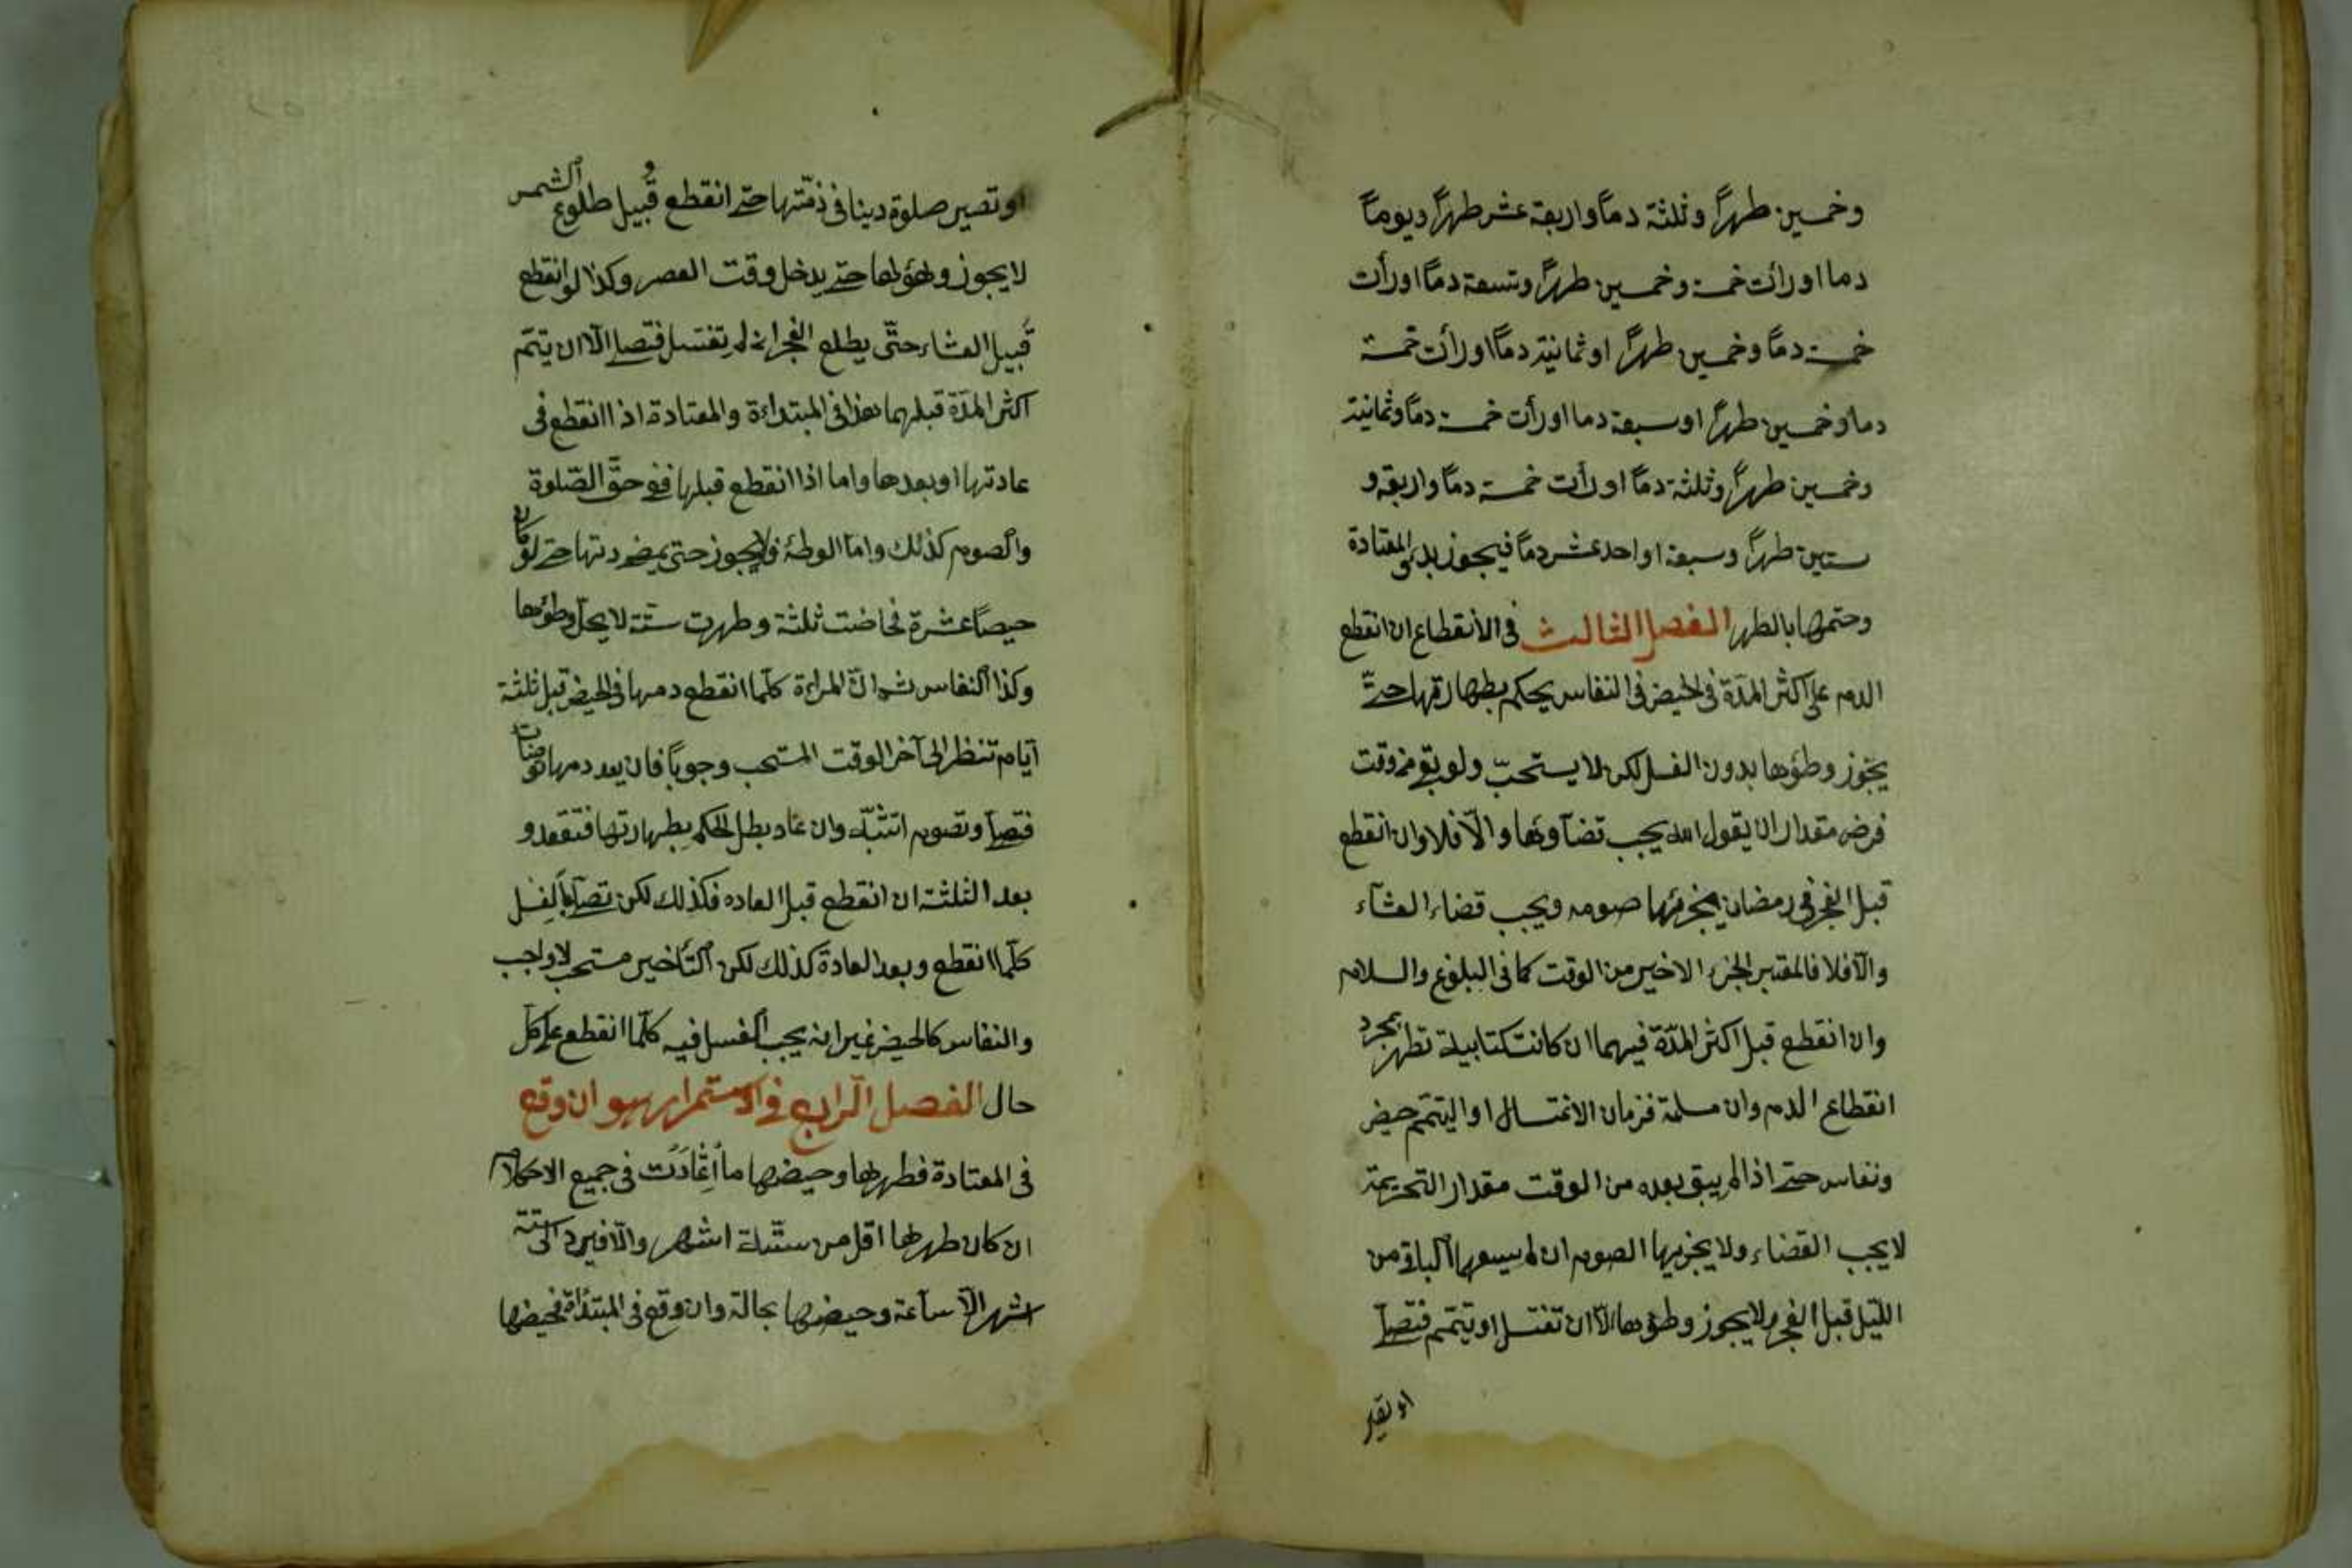 وخمسين طهراً وثلثة دماً واربعة عشر طهراً ويوماً
دما او رأت خمسة وخمسين طهراً وتسعة دماً او رأت
خمسة دماً وخمسين طهراً او ثمانية دماً او رأت خمسة
دما وخمسين طهراً او سبعة دما او رأت خمسة دماً وثمانية
وخمسين طهراً وثلثة دماً او رأت خمسة دماً واربعة و
ستين طهراً وسبعة او احد عشر دماً فيجوز بدؤ المعتادة
وختمها بالطهر الفصل الثالث فى الانقطاع ان انقطع
الدم على اكثر المدّة فى الحيض فى النفاس يحكم بطهارتها حتّى
يجوز وطؤها بدون الغسل لكن لا يستحبّ ولو بقى من وقت
فرض مقدار ان يقول الله يجب قضاؤها والّا فلا وان انقطع
قبل الفجر فى رمضان يجزئها صومه ويجب قضاء العشآء
والّا فلا فالمعتبر الجزء الاخير من الوقت كما فى البلوغ والسلام
وان انقطع قبل اكثر المدّة فيهما ان كانت كتابية تطهر بمجرد
انقطاع الدم وان مسلمة فزمان الاغتسال او التيتمّم حيض
ونفاس حتى اذا لم يبق بعده من الوقت مقدار التحريمة
لا يجب القضاء ولا يجزيها الصوم ان لم يسعهما الباقى من
الليّل قبل الفجر ولا يجوز وطؤها الّا ان تغتسل او تيتمم فتصلّى
او تصير
او تصير صلوة دينا فى ذمّتها حتى انقطع قُبيل طلوع الشمس
لا يجوز وطؤها حتى يدخل وقت العصر وكذا لو انقطع
قُبيل العشاء حتّى يطلع الفجر ان لم تغتسل فتصلى الّا ان يتمّ
اكثر المدّة قبلهما هذا فى المبتداءة والمعتادة اذا انقطع فى
عادتها او بعدها واما اذا انقطع قبلها فهى فى حقّ الصّلوة
والصوم كذلك وامّا الوطئ فلا يجوز حتى يمضى عادتها حتى لو كان
حيضاً عشرة فحاضت ثلثة وطهرت ستّة لا يحلّ وطؤها
وكذا النفاس ثم انّ المراءة كلّما انقطع دمها فى الحيض قبل ثلثة
ايّام تنتظر الى آخر الوقت المستحب وجوباً فان لم يعد دمها توضات
فتصلّى وتصوم اتتشبّه وان عاد بطل الحكم بطهارتها فتقعد و
بعد الثلثة ان انقطع قبل العاده فكذلك لكن تصلّى بالغسل
كلّما انقطع وبعد العادة كذلك لكن التأخير مستحب لا واجب
والنفاس كالحيض غير انه يجب الغسل فيه كلّما انقطع على كل
حال الفصل الرابع فى الاستمرار هو ان وقع
فى المعتادة فطهرها وحيضها ما اعتادت فى جميع الاحكام
ان كان طهرها اقل من ستّة اشهر والّا فيرد الى ستّة
اشهر الّا ساعة وحيضها بحاله وان وقع فى المبتدأة فحيضها